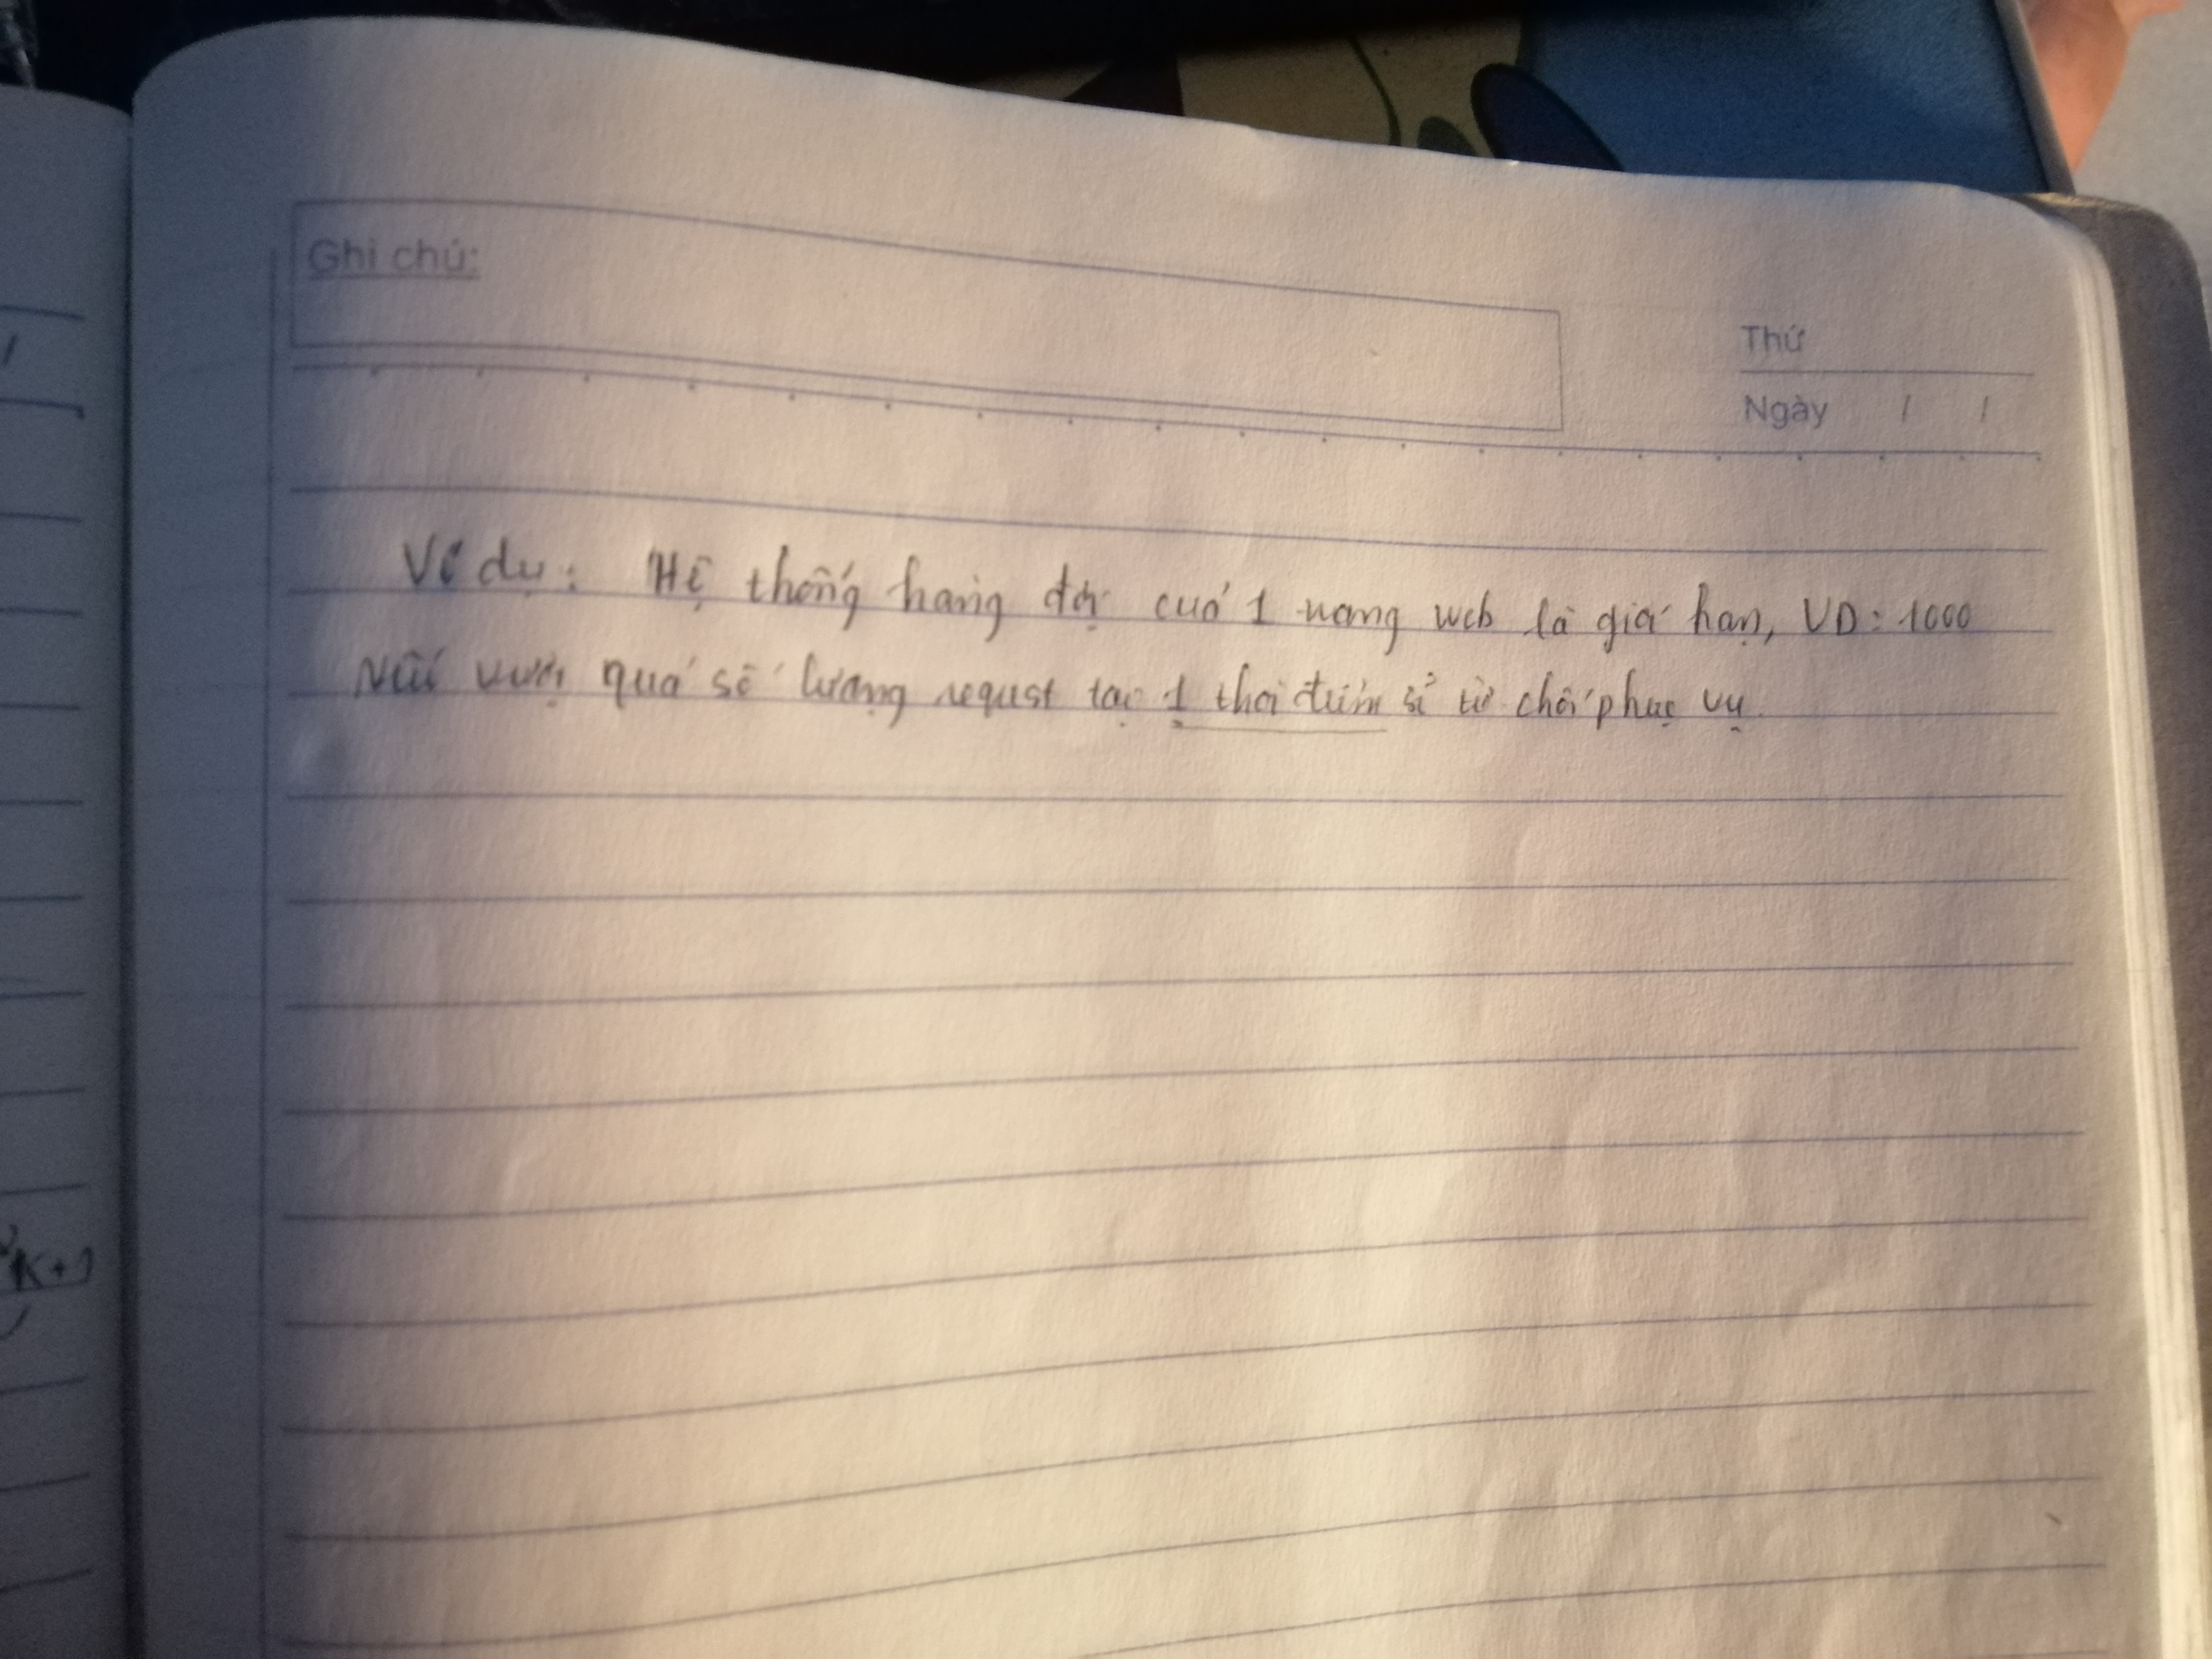 Ghi chú:
Thứ
Ngày / /
Ví dụ: Hệ thống hàng đợi của 1 trang web là giới hạn, VD: 1000
Nếu vượt quá số lượng request tại 1 thời điểm sẽ từ chối phục vụ
K+1